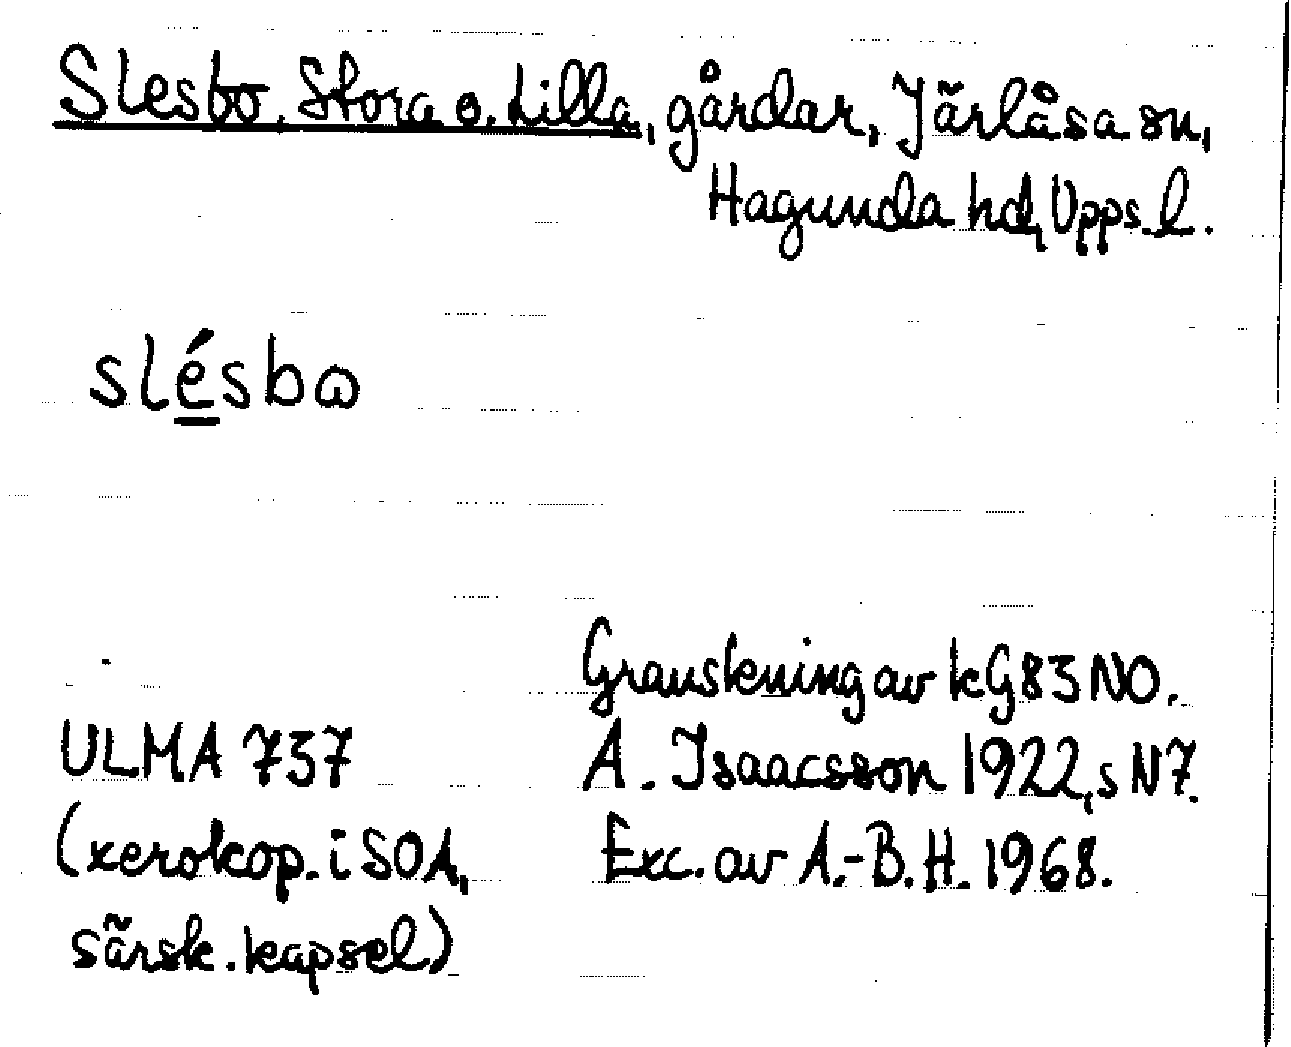 Slesbo, Stora o. Lilla, gårdar, Järlåsa sn,
Hagunda hd, Upps. l.
slésbω
Granskning av kG83NO.
ULMA 737
A. Isaacsson 1922, s N7.
(xerokop. i SOA,
Exc. av A.-B.H. 1968.
särsk. kapsel)